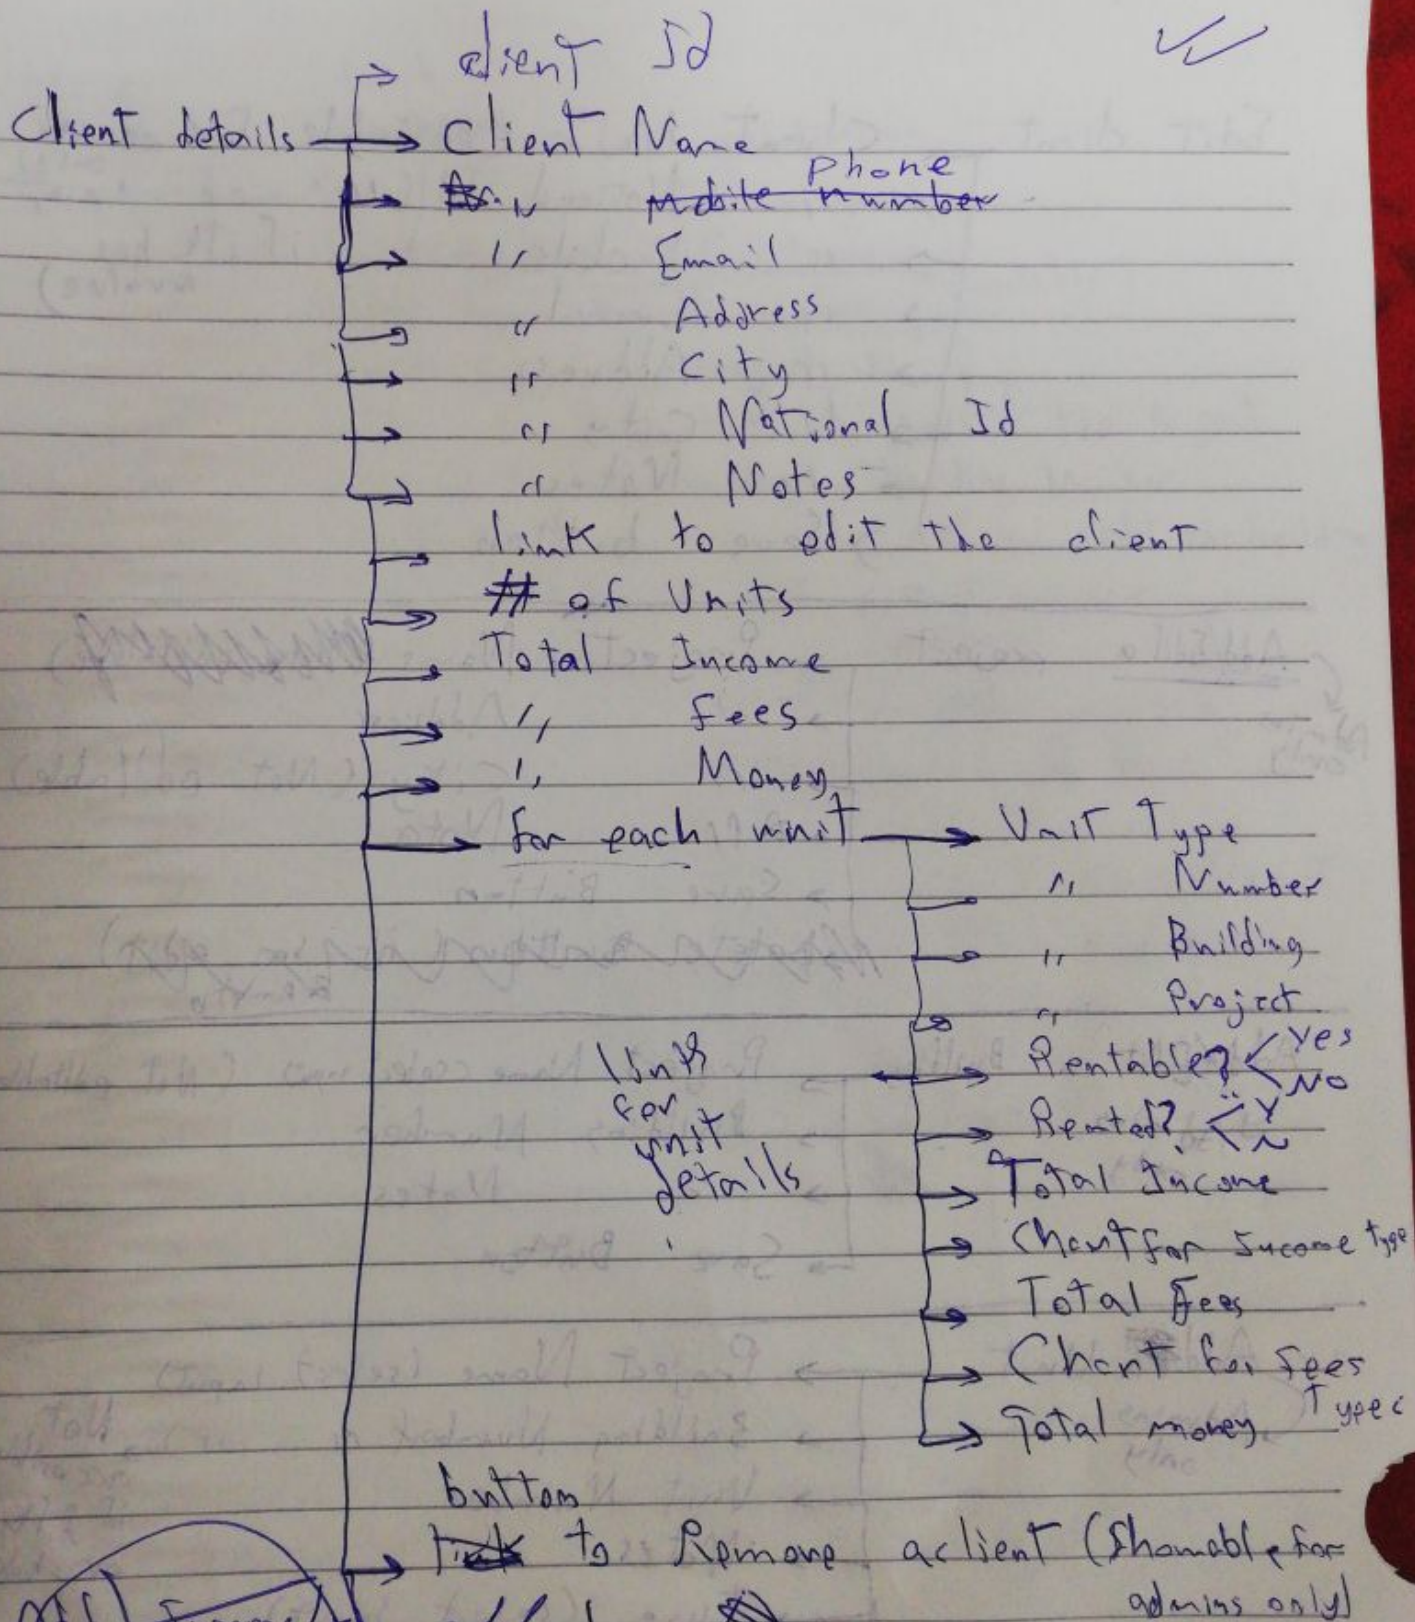 client Id
Client details → Client Name
phone
→ " Mobile number
→ " Email
→ " Address
→ " City
→ " National Id
→ " Notes
→ link to edit the client
→ # of Units
→ Total Income
→ " Fees
→ " Money
→ for each unit → Unit Type
→ " Number
→ " Building
→ " Project
link for unit details ← → Rentable? < Yes No
→ Rented? < Y N
→ Total Income
→ Chart for Income type
→ Total Fees
→ Chart for Fees Types
→ Total money
button
→ link to Remove a client (Showable for
admins only)